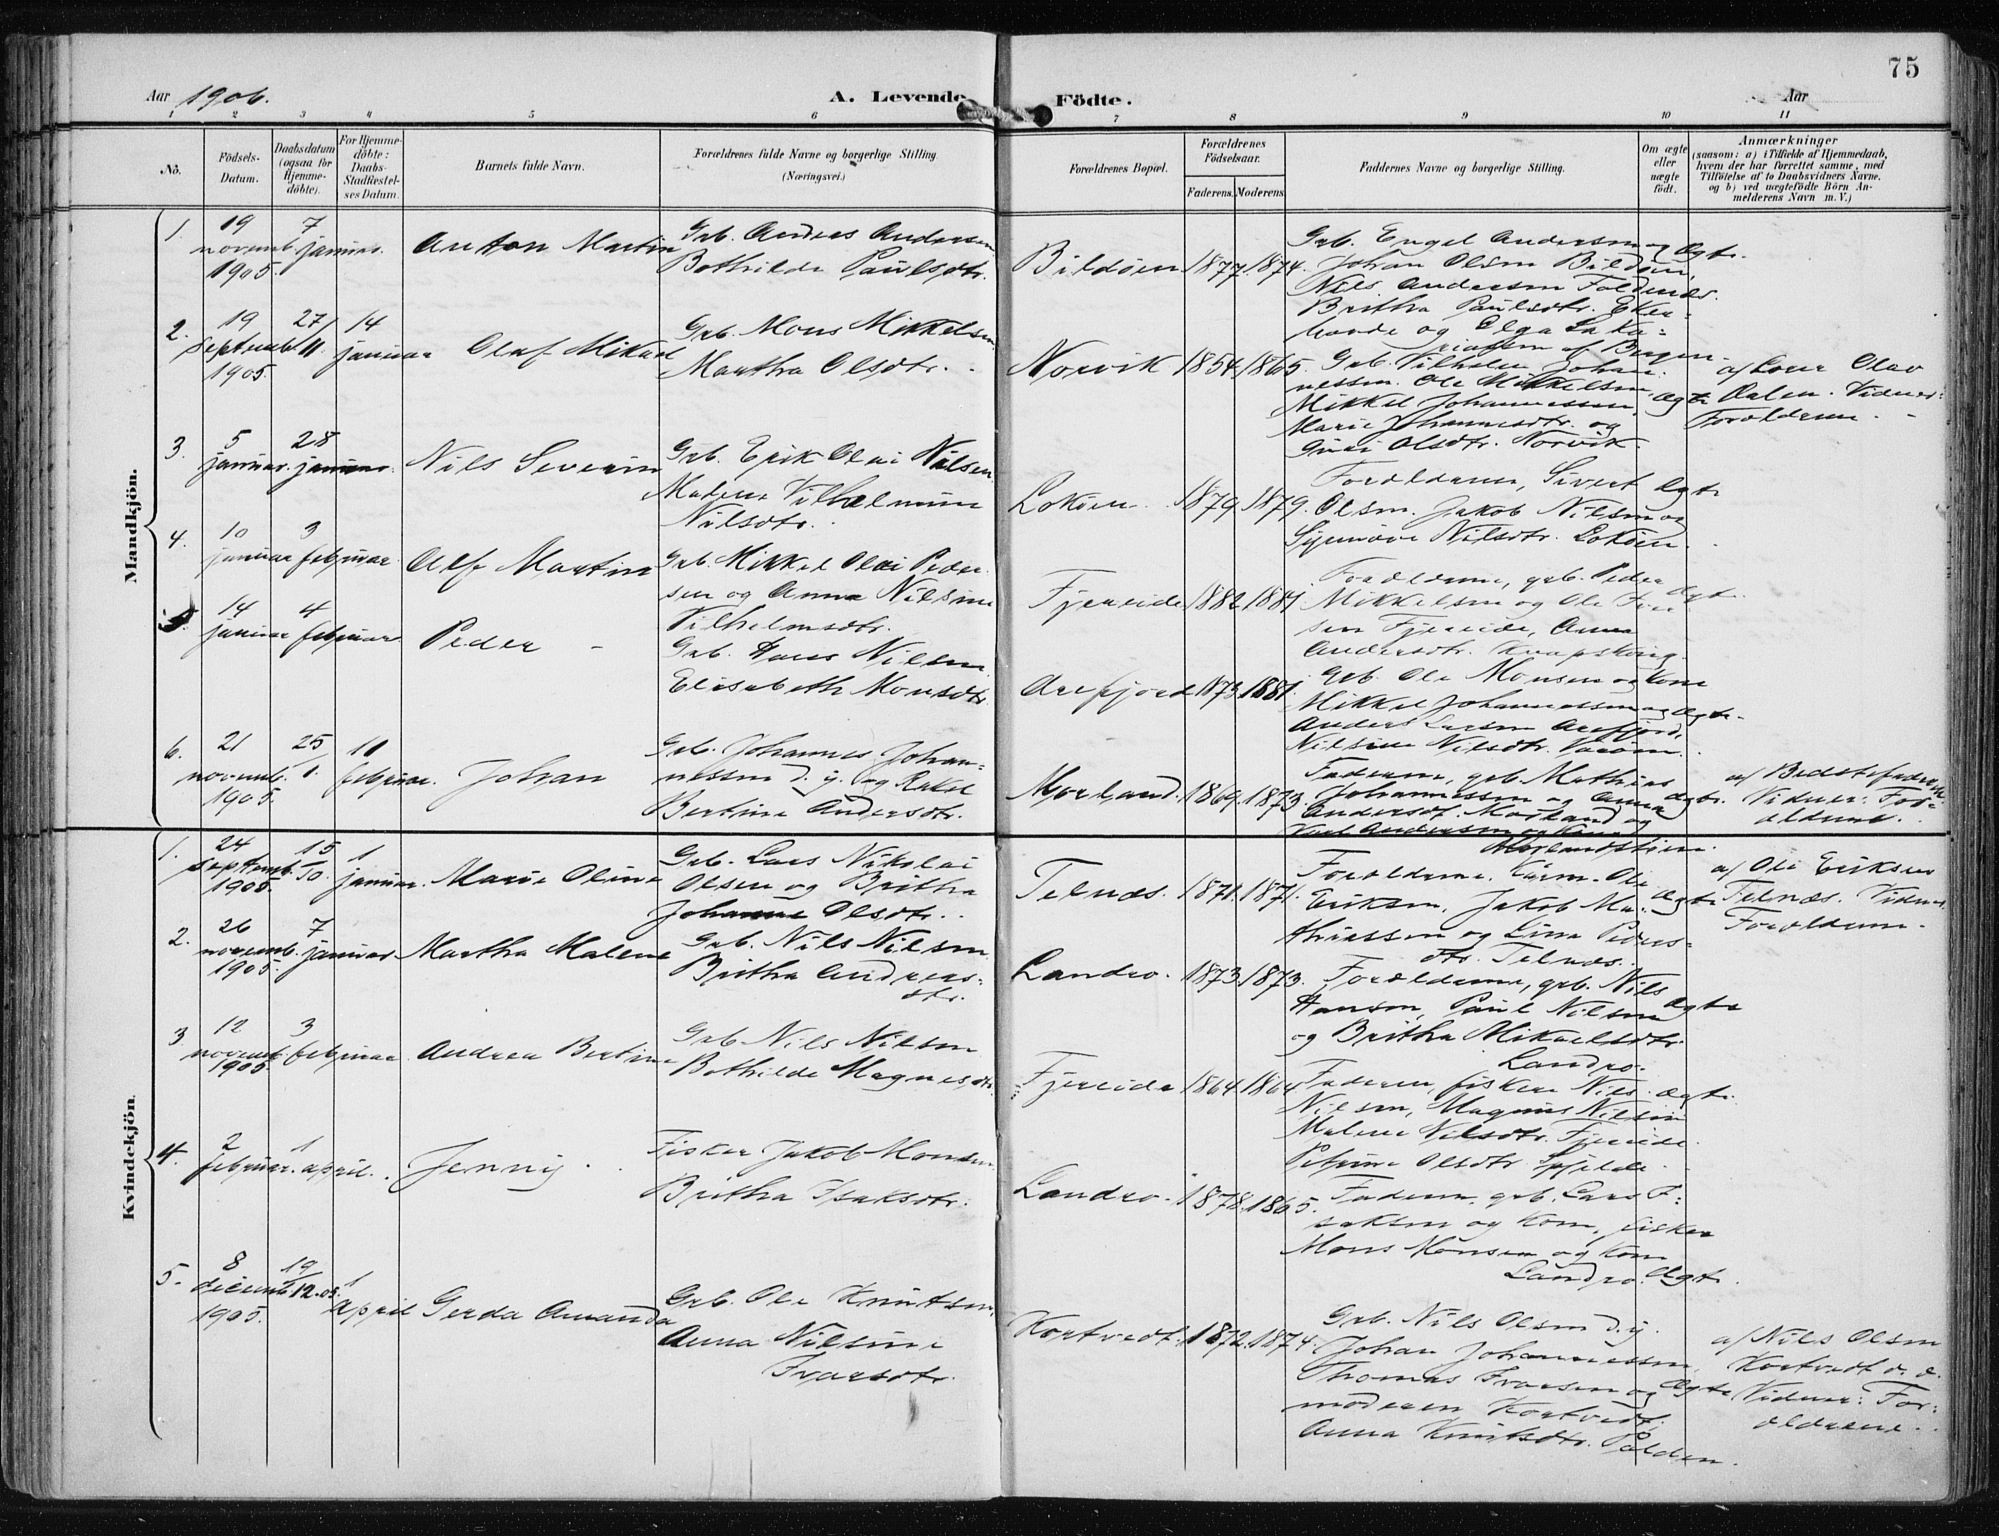 75
Aar 1906.
A. Levende
Födte.
Aar
1 2 3 4 5 6 7 8 9 10 11
No.
Födsels-
Datum.
Daabsdatum
(ogsaa for
Hjemme-
döbte).
For Hjemme-
döbte:
Daabs-
Stadfæstel-
ses Datum.
Barnets fulde Navn.
Forældrenes fulde Navne og borgerlige Stilling
(Næringsvei.)
Forældrenes Bopæl.
Forældrenes
Födselsaar.
Faderens.
Moderens.
Faddernes Navne og borgerlige Stilling.
Om ægte
eller
uægte
födt.
Anmærkninger
(saasom: a) i Tilfælde af Hjemmedaab,
hvem der har forrettet samme, med
Tilföielse af to Daabsvidners Navne,
og b) ved uægtefödte Börn An-
melderens Navn m. V.)
Mandkjön.
1.
19
novemb.
1905.
7
januar.
Anton Martin
Grb. Anders Andersen
Bothilde Paulsdtr.
Bildöen
1877.
1874.
Grb. Engel Andersen og
Johan Olsen Bildöen,
Nils Andersen Foldnæs.
Britha Paulsdtr. Eker-
hovde og Elga
af Bergen.
Ægte.
2.
19
septemb.
1905.
27/
11.
14
januar
Olaf Mikael
Grb. Mons Mikkelsen.
Martha Olsdtr.
Norvik
1854.
1865.
Grb. Vilhelm Johan-
nessen. Ole Mikkelsen
Mikkel Johannessen
Marie Johannesdtr. og
Guri Olsdtr. Norvik
Ægte
a/ Olav
Dalen. Vidner:
Forældrene.
3.
5
januar.
28
januar.
Nils Severin
Grb. Erik Olai Nilsen
Malene Vilhelmine
Nilsdtr.
Loköen
1879.
1879.
Forældrene, Sivert
Olsen. Jakob Nilsen og
Synnöve Nilsdtr. Loköen.
Ægte
4.
10
januar
3
februar.
Alf Martin
Grb. Mikkel Olai Peder-
sen og Anna Nilsine
Vilhelmsdtr.
Fjæreide
1882
1881.
Forældrene, grb. Peder
Mikkelsen og Ole Iver-
sen Fjæreide, Anna
Andersdtr. Knapskog.
Ægte.
5.
14
januar
4
februar
Peder
Grb. Hans Nilsen
Elisabeth Monsdtr.
Arefjord
1873.
1881.
Grb. Ole Monsen og kone
Mikkel Johannessen og
Anders Larsen Arefjord,
Nilsine Nilsdtr.
Ægte.
6.
21
novemb.
1905.
25/
1.
11
februar.
Johan
Grb. Johannes Johan-
nessen d. y. og Rakel
Bertine Andersdtr.
Morland.
1869.
1873.
Faderne, grb. Mathias
Johannessen og Anna
Andersdt. Morland og
Andersen og
Morlandstöen.
Ægte.
a/ Bedstefaderen
Vidner: For-
ældrene.
Kvindekjön.
1.
24
septemb.
1905.
15
10.
1
januar.
Marie Oline
Grb. Lars Nikolai
Olsen og Britha
Johanne Olsdtr.
Telnæs.
1871.
1871.
Forældrene, Ole
Eriksen, Jakob Ma-
thiassen og Lina Peders-
dtr. Telnæs.
Ægte
a/ Ole Eriksen
Telnæs. Vidner
Forældrene.
2.
26
novemb.
1905.
7
januar
Martha Malene
Grb. Nils Nilsen
Britha Andreas-
dtr.
Landro.
1873.
1873.
Forældrene, grb. Nils
Hansen, Paul Nilsen
og Britha Mikaelsdtr.
Landro.
Ægte
3
12
novemb.
1905.
3
februar
Andrea Bertine
Grb Nils Nilsen
Bothilde Magnesdtr.
Fjæreide
1864.
1864.
Faderen, fisker Nils
Nilsen, Magnus Nilsen
Malene Nilsdtr. Fjæreide.
Petrine Olsdtr. Spjelde.
Ægte.
4.
2
februar.
1
april.
Jenny.
Fisker Jakob Monsen
Britha Isaksdtr.
Landro.
1878.
1865.
Faderen, grb. Lars I-
saksen og kone, fisker
Mons Monsen og kone
Landro.
Ægte.
5.
8
decemb.
1905.
19
12.05.
1
april
Gerda Amanda
Grb. Ole Knutsen.
Anna Nilsine
Ivarsdtr.
Kortvedt.
1872.
1874.
Grb. Nils Olsen d. y.
Johan Johannessen,
Thomas Ivarsen og
moderen Kortvedt,
Anna Knutsdtr. Polden.
Ægte
a/ Nils Olsen
Kortvedt d. æ.
Vidner: For-
ældrene.